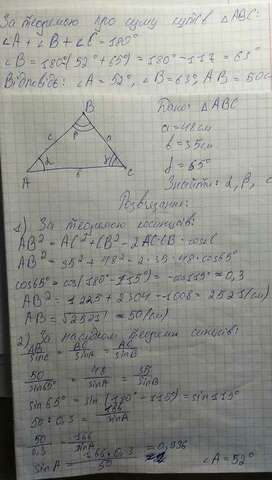 За теоремою про суму кутів △ABC:
∠A + ∠B + ∠C = 180°
∠B = 180° - (52° + 65°) = 180° - 117 = 63°
Відповідь: ∠A = 52°, ∠B = 63°, AB = 50см
B
c β a
A α b γ C
Дано: △ABC
a = 48см
b = 35см
γ = 65°
Знайти: α, β, c
Розв'язання:
1) За теоремою косинусів:
AB² = AC² + CB² - 2AC·CB·cos
AB² = 35² + 48² - 2·35·48·cos65°
cos65° = cos(180° - 115°) = -cos115° ≈ 0,3
AB² = 1225 + 2304 - 1008 = 2521(см)
AB = √2521 ≈ 50(см)
2) За наслідком теореми синусів:
50/sin65° = 48/sinA = 35/sinB
sin65° = sin(180° - 115°) = sin115°
∠A = 52°